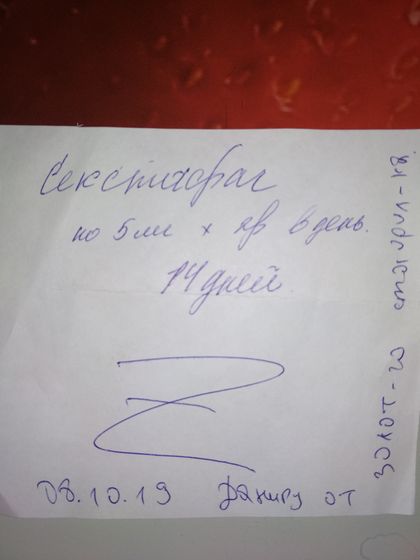 Секстафаг
по 5 мл х в день.
14 дней.
08.10.19 от
золот-го стафил-ка